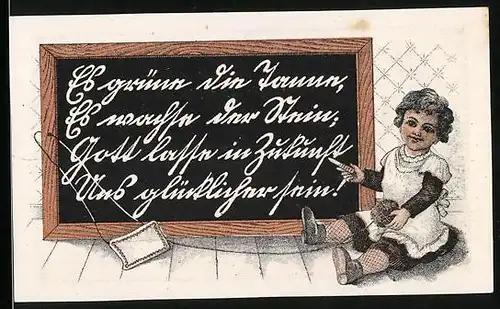 Es grüne die Tanne,
Es wachse der Stein;
Gott lasse in Zukunft
Uns glücklicher sein!